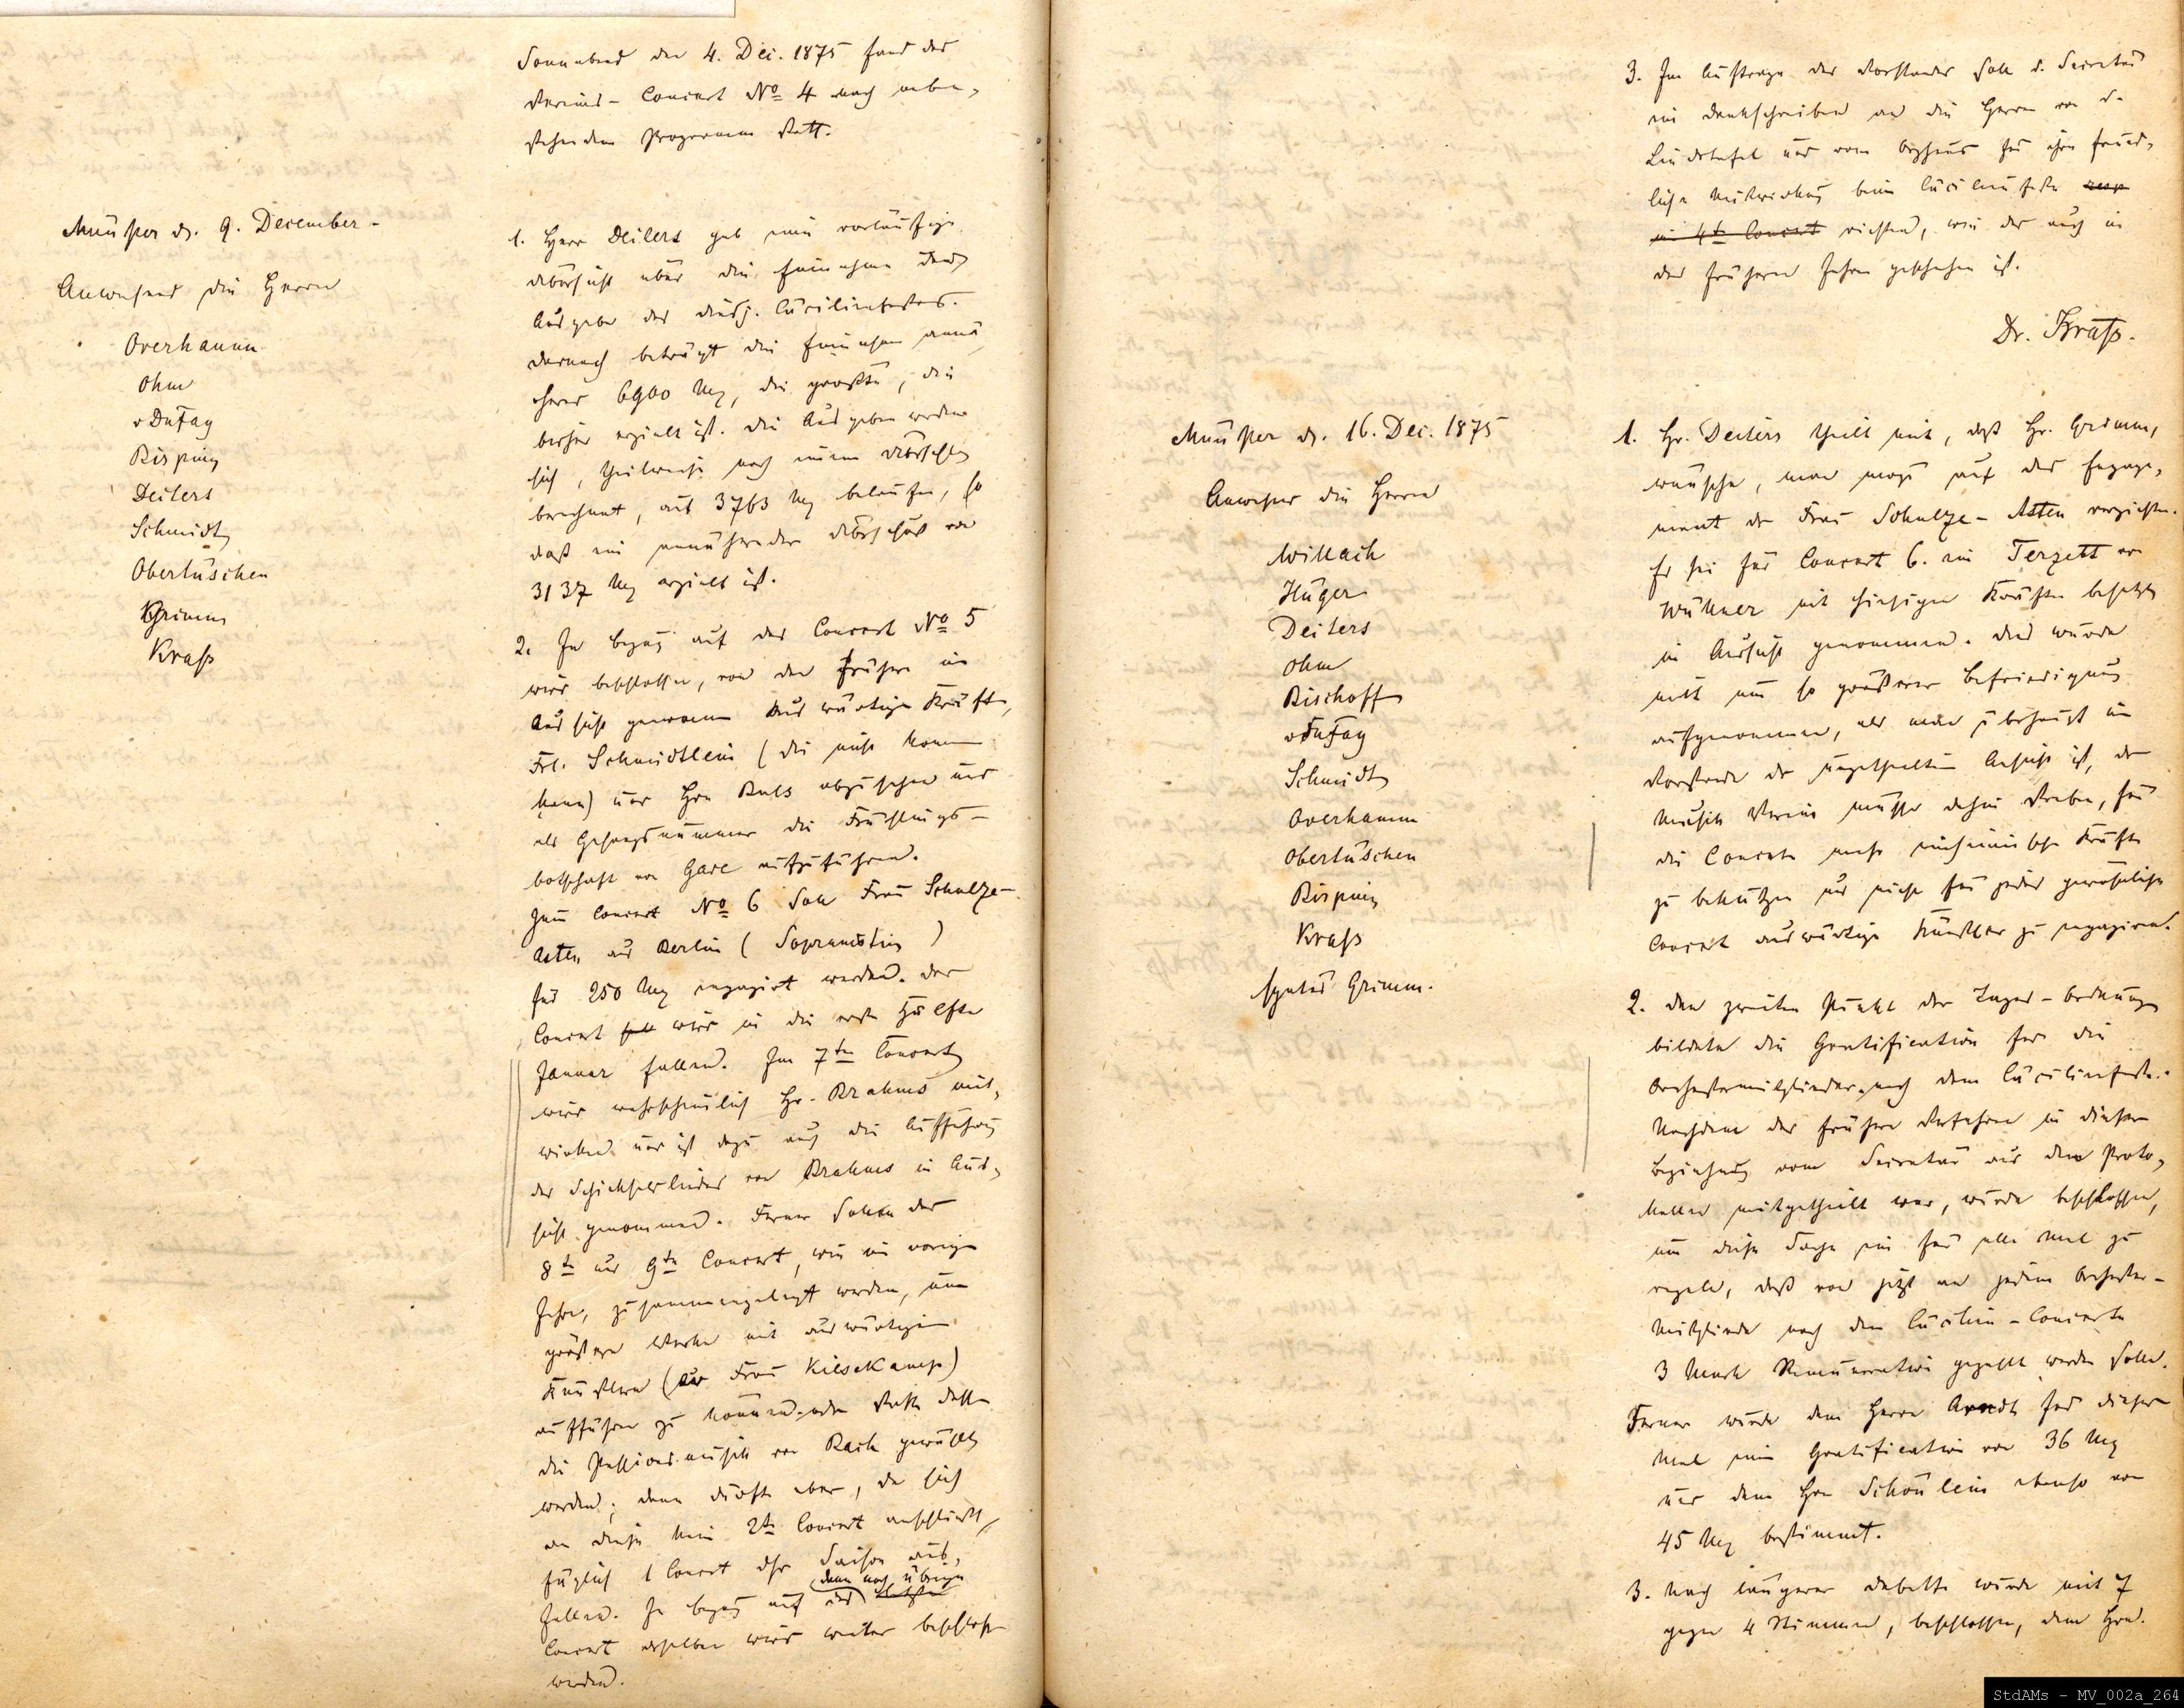 Sonnabend den 4. Dec. 1875 fand das
Vereins-Concert No 4 nach neben-
stehendem Programm statt.
Münster d. 9. December.
Anwesend die Herren
Overhamm
Ohm
v Dufay
Bisping
Deiters
Schmidt
Obertüschen
Grimm
Kraß
1. Herr Deiters gab eine vorläufige
Übersicht über die Einnahme und
Ausgabe des diesj. Cäcilienfestes.
Darnach beträgt die Einnahme annä-
hernd 6900 Mk, die größte, die
bisher erzielt ist. Die Ausgaben werden
sich, theilweise nach einem Überschlag
berechnet, auf 3763 Mk belaufen, so
daß ein annähernder Überschuß von
3137 Mk erzielt ist.
2. In Bezug auf das Concert No 5
wird beschlossen, von den früher in
Aussicht genommenen auswärtigen Kräften,
Frl. Schmidtlein (die nicht kommen
kann) und Hrn Buls abzusehen und
als Gesangsnummer die Frühlings-
botschaft von Gade aufzuführen.
Zum Concert No 6 soll Frau Schultze-
Asten aus Berlin (Sopranistin)
für 250 Mk engagirt werden. Das
Concert soll wird in die erste Hälfte
Januar fallen. Im 7ten Concert
wird wahrscheinlich Hr. Brahms mit-
wirken und ist dazu auch die Aufführung
des Schicksalsliedes von Brahms in Aus-
sicht genommen. Ferner sollen das
8te und 9te Concert, wie im vorigen
Jahre, zusammengelegt werden, um
größere Werke mit auswärtigen
Künstlern (Frau Kiesekamp)
aufführen zu können, oder statt dessen
die Passionsmusik von Bach gewählt
werden; dann dürfte aber, da sich
an diese kein 2tes Concert anschließt,
füglich 1 Concert der Saison aus-
fallen. In Bezug auf das dann noch übrige
Concert derselben wird weiter beschlossen
werden.
3. Im Auftrage des Vorstandes soll d. Secretär
ein Dankschreiben an die Herren von d.
Liedertafel und vom für ihre freund-
liche Mitwirkung beim Cäcilienfeste resp
im 4ten Concert richten, wie das auch in
den früheren Jahren geschehen ist.
Dr. Kraß.
Münster d. 16. Dec. 1875
Anwesend die Herren
Willach
Hüger
Deiters
Ohm
Bischoff
v Dufay
Schmidt
Overhamm
Obertüschen
Bisping
Kraß
später Grimm.
1. Hr. Deiters theilt mit, daß Hr. Grimm,
wünsche, man möge auf das Engage-
ment der Frau Schultze-Asten verzichten.
Er sei für Concert 6. ein Terzett von
Wüllner mit hiesigen Kräften besetzt
in Aussicht genommen. Dies wurde
mit um so größerer Befriedigung
aufgenommen, als man überhaupt im
Vorstande der ungetheilten Ansicht ist, der
Musik Verein müsse dahin streben, für
die Concerte mehr einheimische Kräfte
zu benutzen und nicht für jedes gewöhnliche
Concert auswärtige Künstler zu engagiren.
2. Den zweiten Punkt der Tages-Ordnung
bildete die Gratification für die
Orchestermitglieder nach dem Cäcilienfeste.
Nachdem das frühere Verfahren in dieser
Beziehung vom Secretär aus den Proto-
kollen mitgetheilt war, wurde beschlossen,
um diese Sache ein für alle Mal zu
regeln, daß von jetzt an jedem Orchester-
Mitgliede nach dem Cäcilien-Concerte
3 Mark Remuneration gezahlt werden solle.
Ferner wurde dem Herrn Arndt für dieses
Mal eine Gratification von 36 Mk
und dem Hrn Schönlein ebenso von
45 Mk bestimmt.
3. Nach längerer Debatte wurde mit 7
gegen 4 Stimmen, beschlossen, dem Hrn.
StdAMs - MV_002a_264